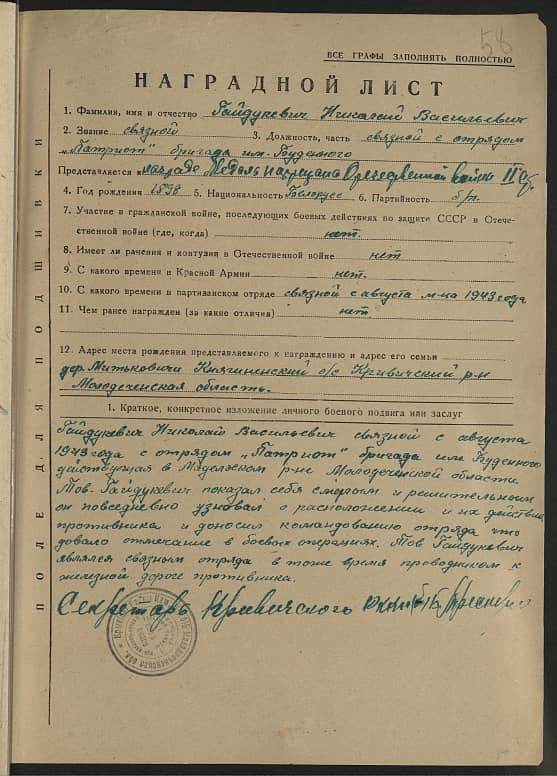 58
ВСЕ ГРАФЫ ЗАПОЛНЯТЬ ПОЛНОСТЬЮ
НАГРАДНОЙ ЛИСТ
1. Фамилия, имя и отчество Гайдукевич Николай Васильевич
2. Звание связной 3. Должность, часть связной с отрядом
„Патриот" бригада им. Буденного
Представляется к награде Медаль Отечественной войны II ст.
4. Год рождения 1898 5. Национальность Белорус 6. Партийность б/п.
7. Участие в гражданской войне, последующих боевых действиях по защите СССР в Отече-
ственной войне (где, когда) нет.
8. Имеет ли рачения и контузии в Отечественной войне нет
9. С какого времени в Красной Армии нет.
10. С какого времени в партизанском отряде связной с августа м-ца 1943 года
11. Чем ранее награжден (за какие отличия) нет
12. Адрес места рождения представляемого к награждению и адрес его семьи
дер. Митьковичи Княгининский с/с Кривичский р-н
Молодеченская область.
1. Краткое, конкретное изложение личного боевого подвига или заслуг
Гайдукевич Николай Васильевич связной с августа
1943 года с отрядом „Патриот" бригада им Буденного
действующая в Мядельском р-не Молодеченской области.
Тов. Гайдукевич показал себя смелым и решительным
он повседневно узновал о расположении и на действии
противника и доносил командованию отряда что
довало отмечание в боевых операциях. Тов Гайдукевич
являлся связным отряда в тоже время проводником к
железной дороге противника.
Секретарь Кривичского
ПОЛЕ ДЛЯ ПОДШИВКИ